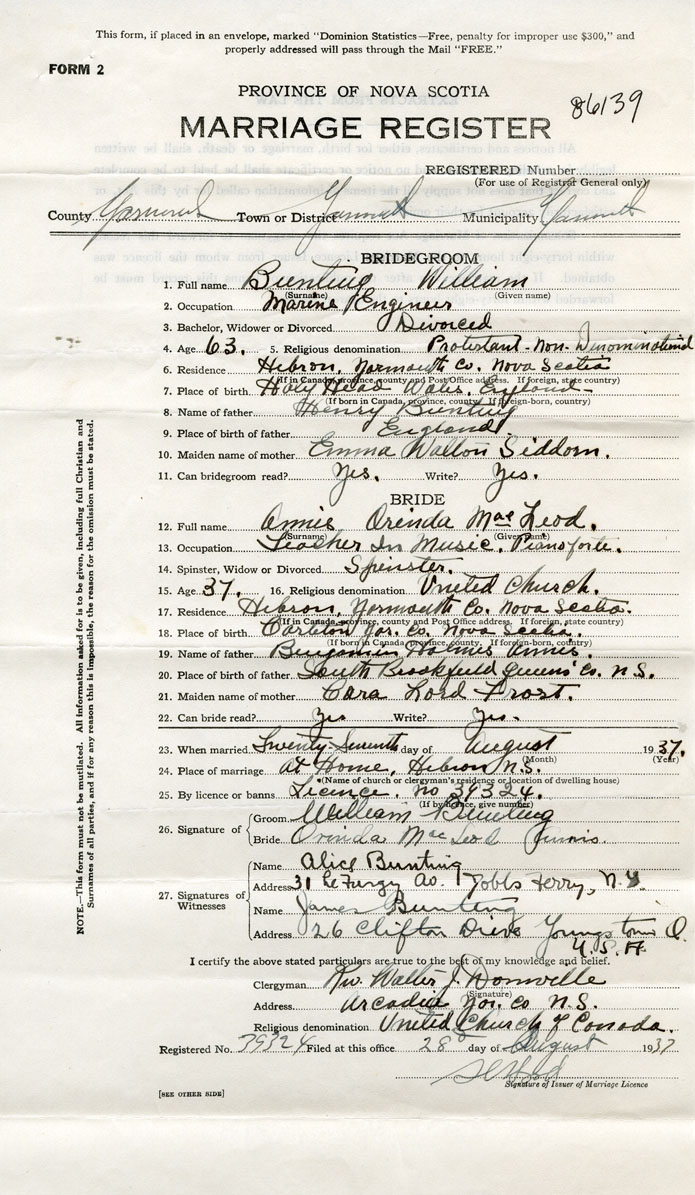 This form, if placed in an envelope, marked "Dominion Statistics—Free, penalty for improper use $300," and
properly addressed will pass through the Mail "FREE."
FORM 2
PROVINCE OF NOVA SCOTIA
86139
MARRIAGE REGISTER
REGISTERED Number
(For use of Registrar General only)
County Yarmouth Town or District Yarmouth Municipality Yarmouth
BRIDEGROOM
1. Full name Bunting William
(Surname) (Given name)
2. Occupation Marine Engineer
3. Bachelor, Widower or Divorced Divorced
4. Age 63. 5. Religious denomination Protestant - Non-Denominational
6. Residence Hebron, Yarmouth Co. Nova Scotia
(If in Canada, province, county and Post Office address. If foreign, state country)
7. Place of birth Holy Head Wales, England
(If born in Canada, province, county. If foreign-born, country)
8. Name of father Henry Bunting
9. Place of birth of father England.
10. Maiden name of mother Emma Walton Siddorn.
11. Can bridegroom read? Yes. Write? Yes.
BRIDE
12. Full name Annis Orinda MacLeod.
(Surname) (Given name)
13. Occupation Teacher In Music, Pianoforte.
14. Spinster, Widow or Divorced Spinster.
15. Age 37. 16. Religious denomination United Church.
17. Residence Hebron, Yarmouth Co. Nova Scotia.
(If in Canada, province, county and Post Office address. If foreign, state country)
18. Place of birth Carleton Yar. Co. Nova Scotia.
(If born in Canada, province, county. If foreign-born, country)
19. Name of father Benjamin Holmes Annis.
20. Place of birth of father South Brookfield Queens Co. N.S.
21. Maiden name of mother Cora Lord Frost.
22. Can bride read? Yes Write? Yes.
23. When married Twenty-Seventh day of August 1937.
(Month) (Year)
24. Place of marriage At Home, Hebron N.S.
(Name of church or clergyman's residence or location of dwelling house)
25. By licence or banns Licence. no 39324.
(If by licence, give number)
26. Signature of
Groom William Bunting
Bride Orinda MacLeod Annis.
27. Signatures of Witnesses
Name Alice Bunting
Address 31 LeFurgy Av. Dobbs Ferry, N.Y.
Name James Bunting
Address 26 Clifton Drive Youngstown O.
U.S.A.
I certify the above stated particulars are true to the best of my knowledge and belief.
Clergyman Rev. Walter J. Domville
(Signature)
Address Arcadia Yar. Co N.S.
Religious denomination United Church of Canada.
Registered No. 39324 Filed at this office 28th day of August 1937
Signature of Issuer of Marriage Licence
[SEE OTHER SIDE]
NOTE.—This form must not be mutilated. All information asked for is to be given, including full Christian and
Surnames of all parties, and if for any reason this is impossible, the reason for the omission must be stated.